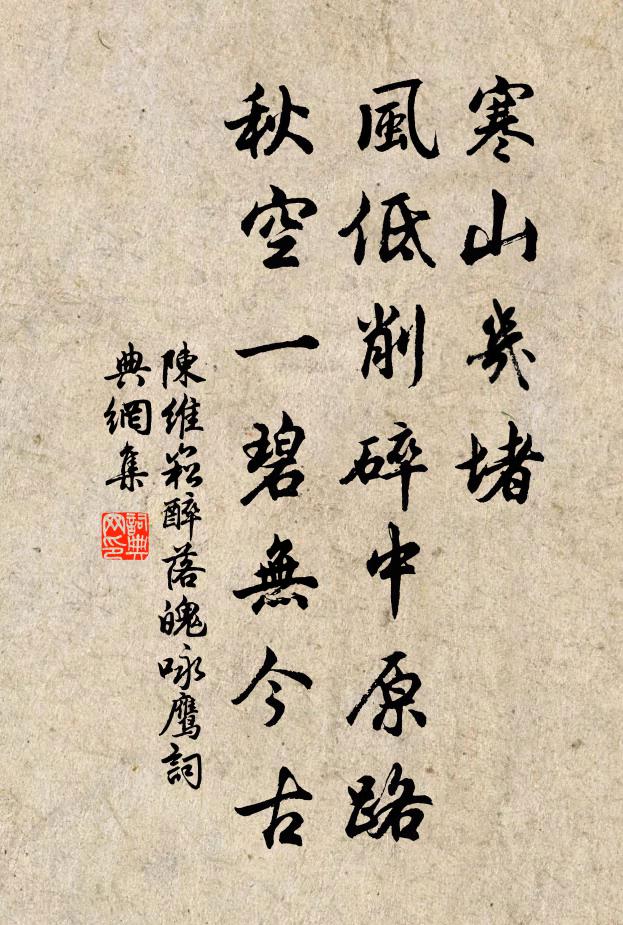 寒山幾堵
風低削碎中原路
秋空一碧無今古
陳維崧醉落魄咏鷹詞
典網集
詞典网印